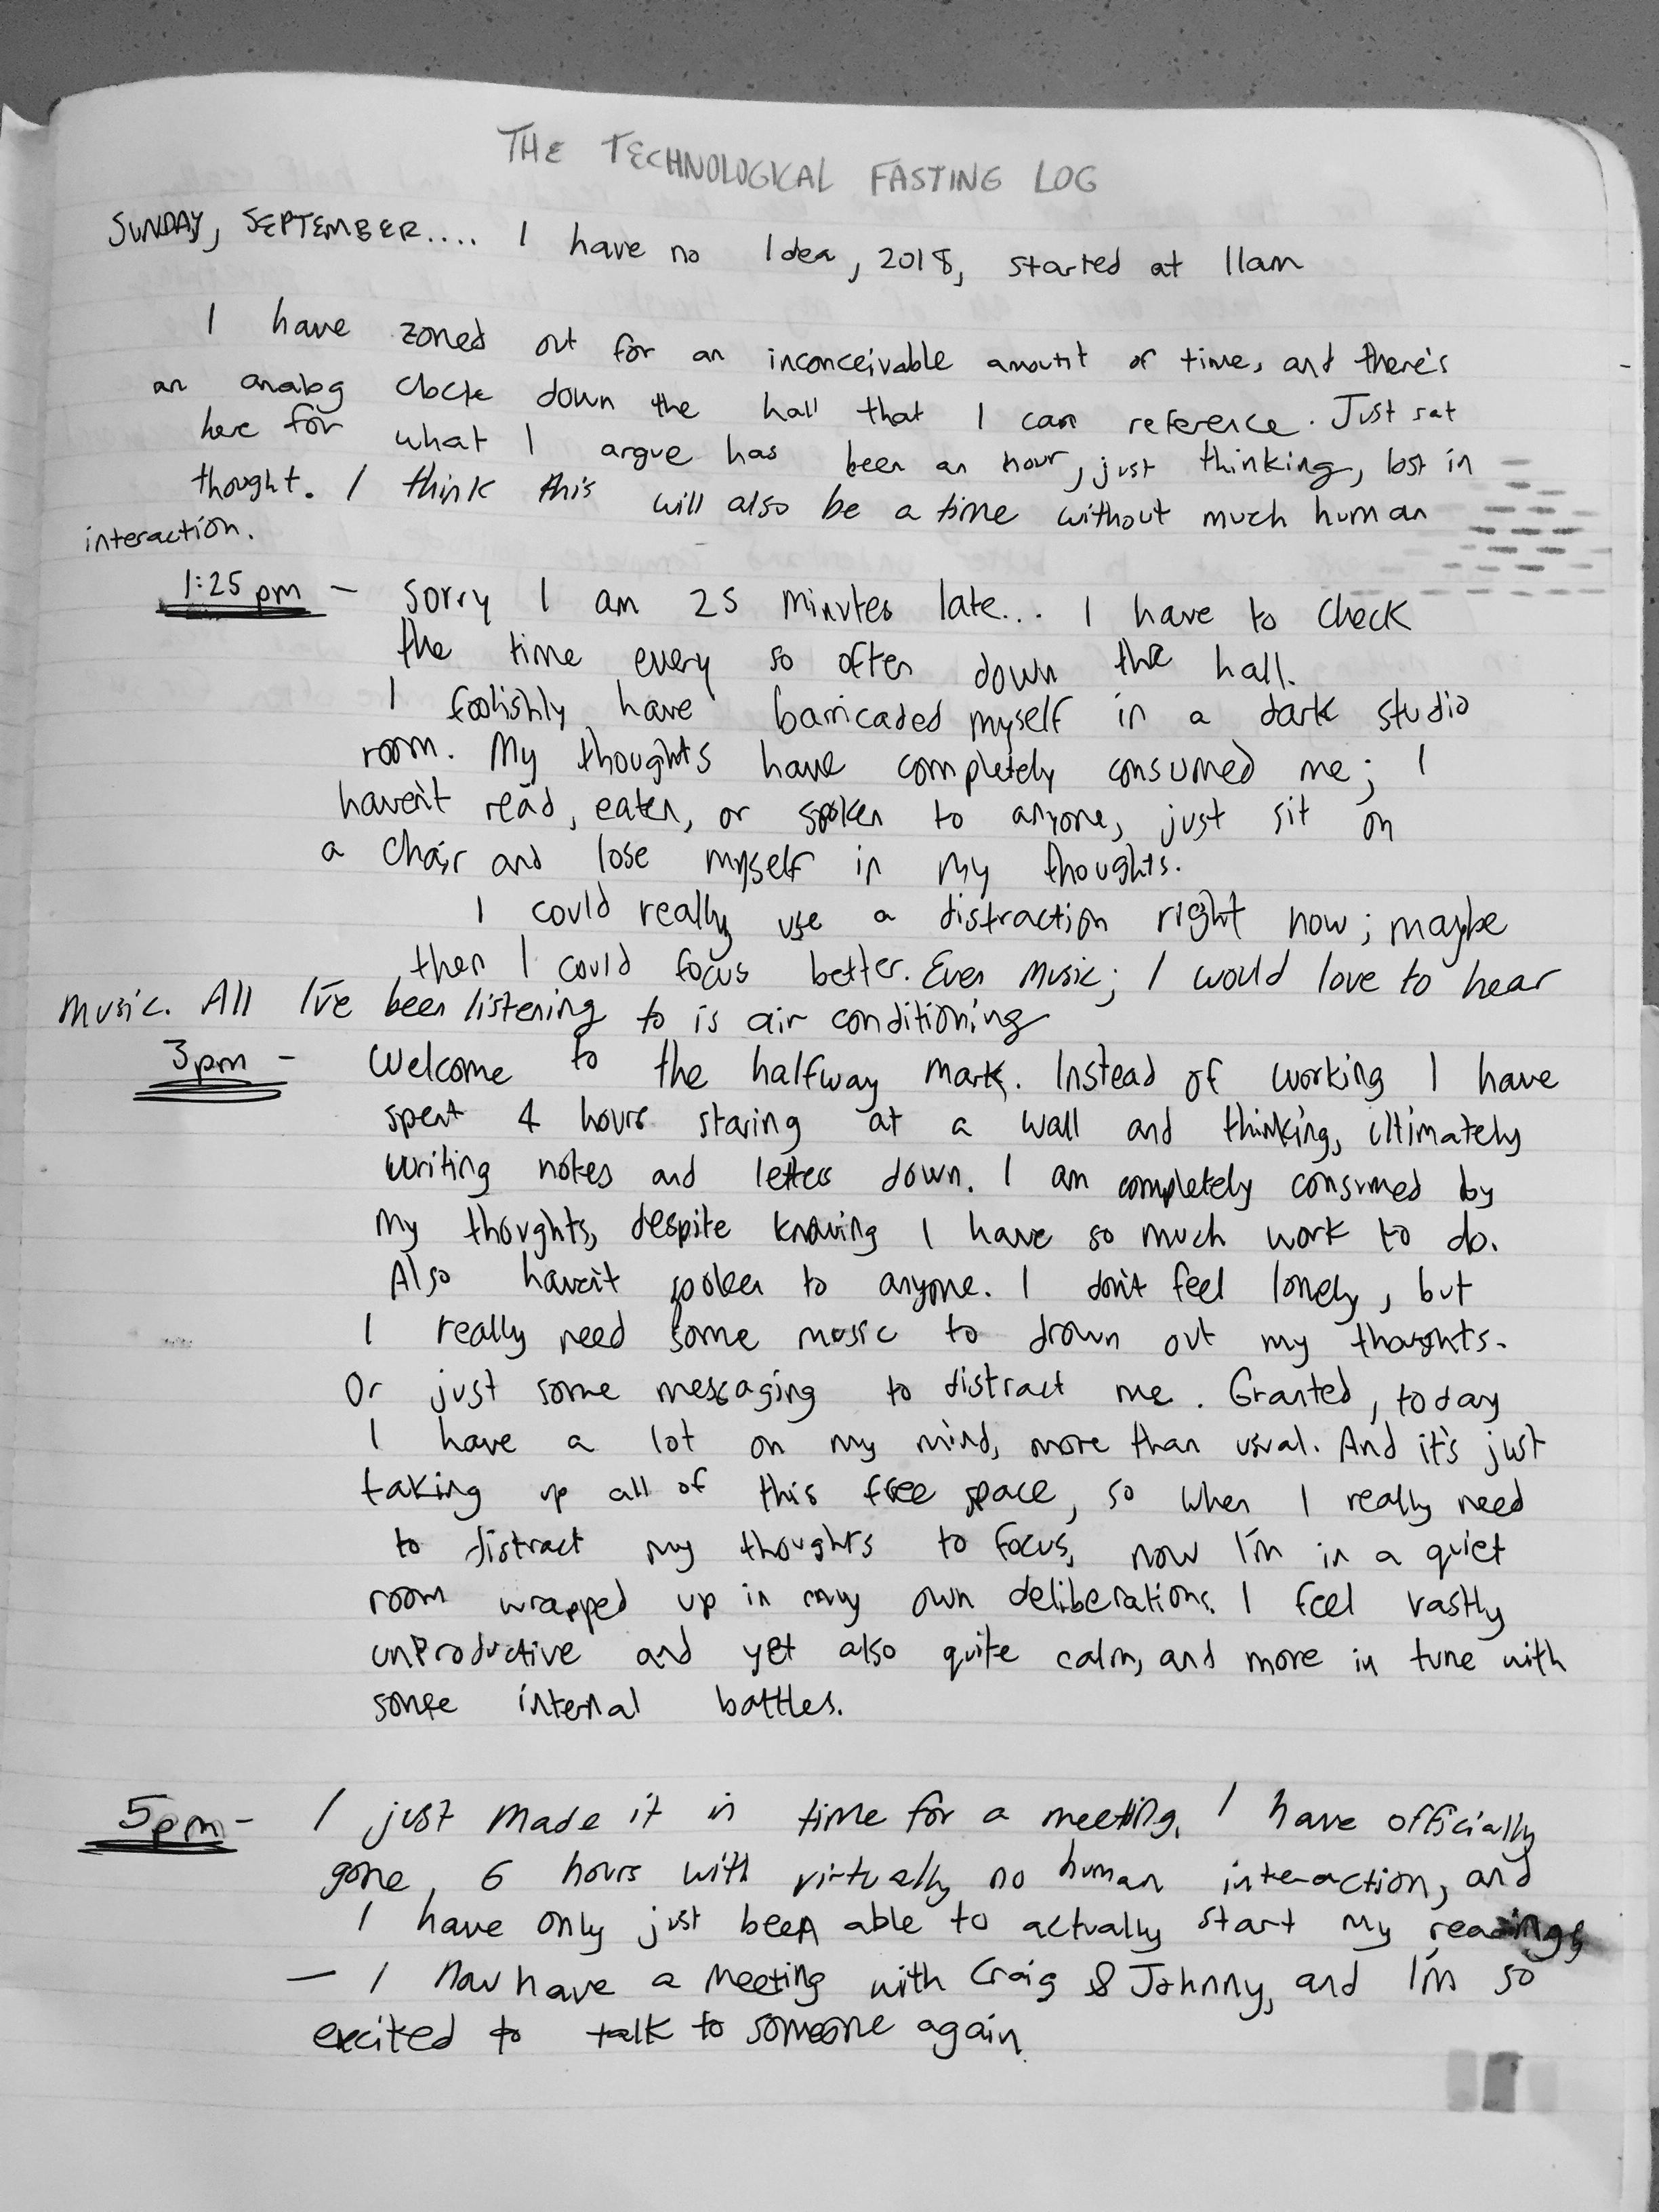 THE TECHNOLOGICAL FASTING LOG
SUNDAY, SEPTEMBER.... I have no Idea, 2018, started at 11am
I have zoned out for an inconceivable amount of time, and there's
an analog clock down the hall that I can reference. Just sat
here for what I argue has been an hour, just thinking, lost in
thought. I think this will also be a time without much human
interaction.
1:25 pm - Sorry I am 25 minutes late... I have to check
the time every so often down the hall.
I foolishly have barricaded myself in a dark studio
room. My thoughts have completely consumed me; I
haven't read, eaten, or spoken to anyone, just sit on
a chair and lose myself in my thoughts.
I could really use a distraction right now; maybe
then I could focus better. Even music; I would love to hear
music. All I've been listening to is air conditioning
3pm - Welcome to the halfway mark. Instead of working I have
spent 4 hours staring at a wall and thinking, ultimately
writing notes and letters down. I am completely consumed by
my thoughts, despite knowing I have so much work to do.
Also haven't spoken to anyone. I don't feel lonely, but
I really need some music to drown out my thoughts.
Or just some messaging to distract me. Granted, today
I have a lot on my mind, more than usual. And it's just
taking up all of this free space, so when I really need
to distract my thoughts to focus, now I'm in a quiet
room wrapped up in my own deliberations. I feel vastly
unproductive and yet also quite calm, and more in tune with
some internal battles.
5pm - I just made it in time for a meeting. I have officially
gone, 6 hours with virtually no human interaction, and
I have only just been able to actually start my readings
— I now have a meeting with Craig & Johnny, and I'm so
excited to talk to someone again.